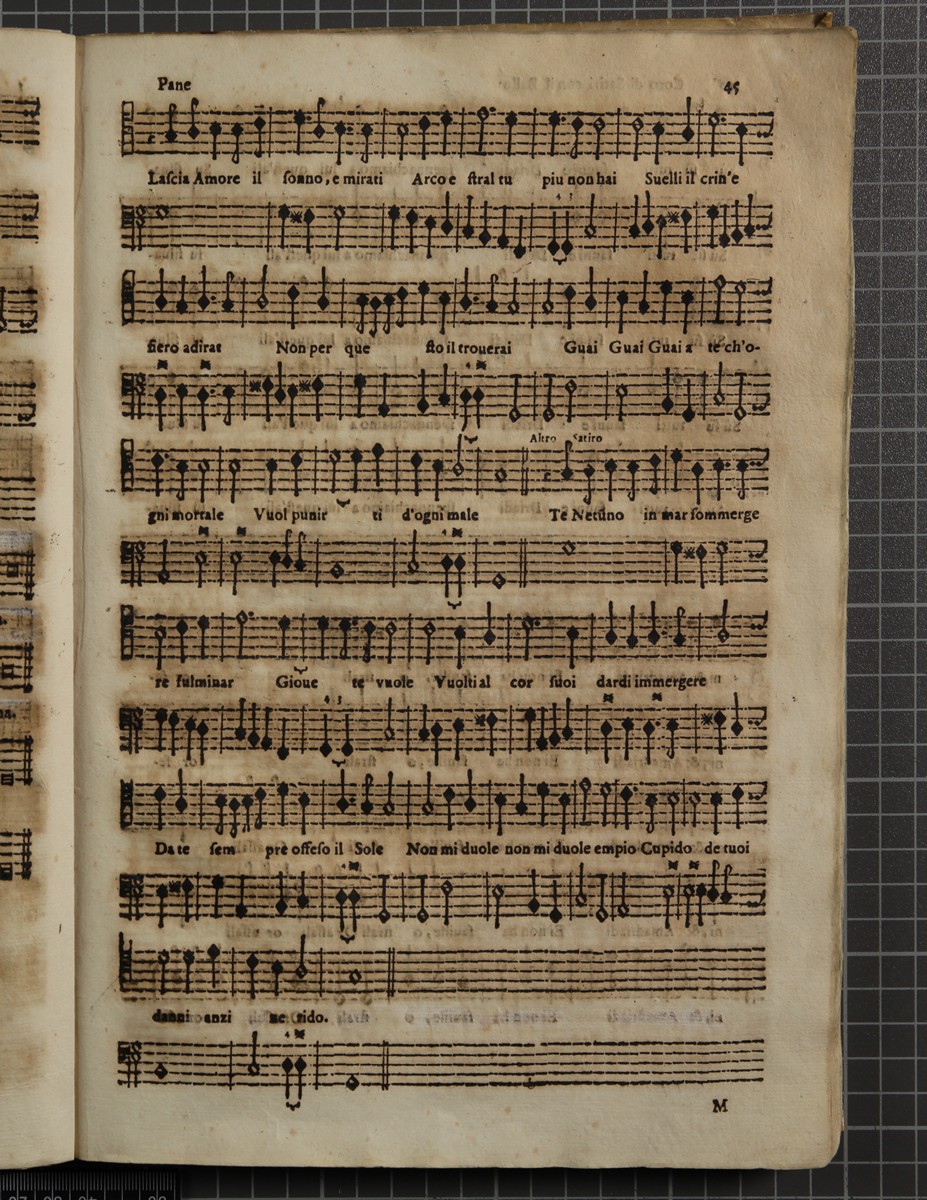 Pane 45
Laſcia Amore il ſonno, e mirati Arco e ſtral tu piu non hai Suelli il crin'e
fiero adirat Non per que ſto il trouerai Guai Guai Guai a te ch'o-
Altro Satiro
gni mortale Vuol punir ti d'ogni male Te Netũno in mar ſommerge
re fulminar Gioue te vuole Vuolti al cor ſuoi dardi immergere
Da te ſem pre offeſo il Sole Non mi duole non mi duole empio Cupido de tuoi
danni anzi ne rido.
M